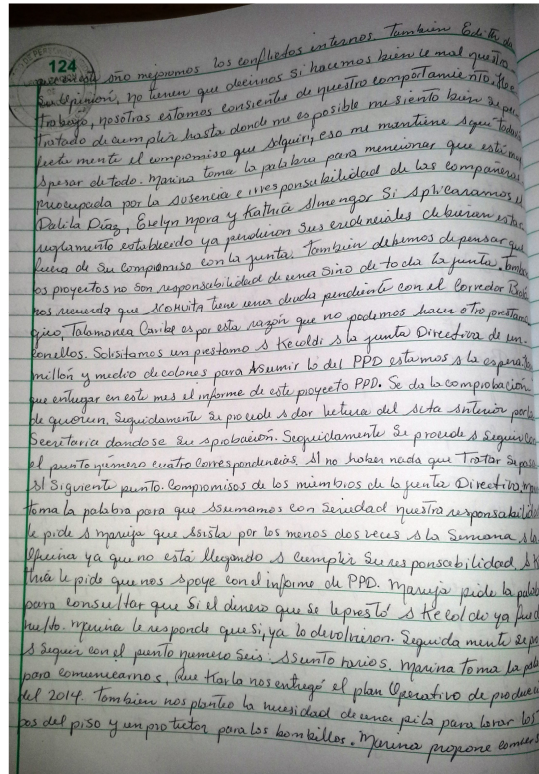 124
este año mejoremos los conflictos internos. También Edith da
su opinión, no tienen que decirnos si hacemos bien o mal nuestro
trabajo, nosotras estamos consientes de nuestro comportamiento. Yo e
tratado de cumplir hasta donde me es posible me siento bien
fecta mente el compromiso que adquiri, eso me mantiene aqui todavia
apesar de todo. Marina toma la palabra para mencionar que está muy
preocupada por la ausencia e irresponsabilidad de las compañeras
Dalila Díaz, Evelyn Mora y Kathia Almengor Si aplicaramos el
reglamento establecido ya perdieron sus credenciales debieran estar
fuera de su compromiso con la junta. También debemos de pensar que
los proyectos no son responsabilidad de una sino de toda la junta. También
nos recuerda que ACOMUITA tiene una deuda pendiente con el Corredor Bioló
gico, Talamanca Caribe es por esta razón que no podemos hacer otro prestamo
con ellos. Solisitamos un prestamo a Kecoldi a la junta Directiva de un
millón y medio de colones para asumir lo del PPD estamos a la espera
que entregar en este mes el informe de este proyecto PPD. Se da la comprobación
de quorun, seguidamente se procede a dar letura del acta anterior por la
Secretaria dandose su aprobación. Seguidamente se procede a seguir con
el punto número cuatro Correspondencias. Al no haber nada que tratar se pasa
al siguiente punto. Compromisos de los miembros de la junta Directiva,
toma la palabra para que asumamos con seriedad nuestra responsabilidad
le pide a maruja que asista por los menos dos veces a la semana a la
Oficina ya que no está llegando a cumplir su responsabilidad, a Ka
thia le pide que nos apoye con el informe de PPD. Maruja pide la palabra
para consultar que si el dinero que se le prestó a Kecoldi ya fue de
vuelto. Marina le responde que si, ya lo devolvieron. Seguida mente se pro
a seguir con el punto numero seis: asunto varios. Marina toma la pala
para comunicarnos, que Karla nos entregó el plan Operativo de produc
del 2014. También nos planteo la necesidad de una pila para lavar los
pos del piso y un protector para los bombillos. Marina propone